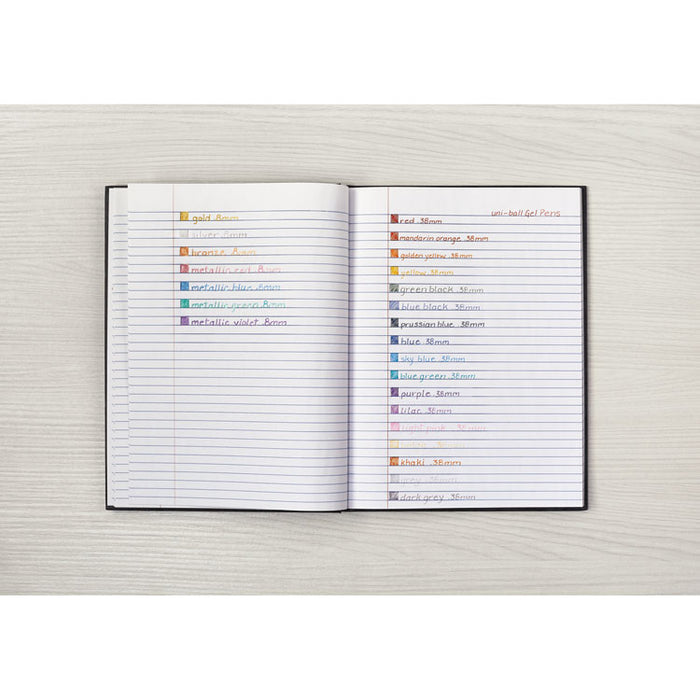 gold .8mm
silver .8mm
bronze .8mm
metallic red .8mm
metallic blue .8mm
metallic green .8mm
metallic violet .8mm
uni-ball Gel Pens
red .38mm
mandarin orange .38mm
golden yellow .38mm
yellow .38mm
green black .38mm
blue black .38mm
prussian blue .38mm
blue .38mm
sky blue .38mm
blue green .38mm
purple .38mm
lilac .38mm
light pink .38mm
.38mm
khaki .38mm
grey .38mm
dark grey .38mm